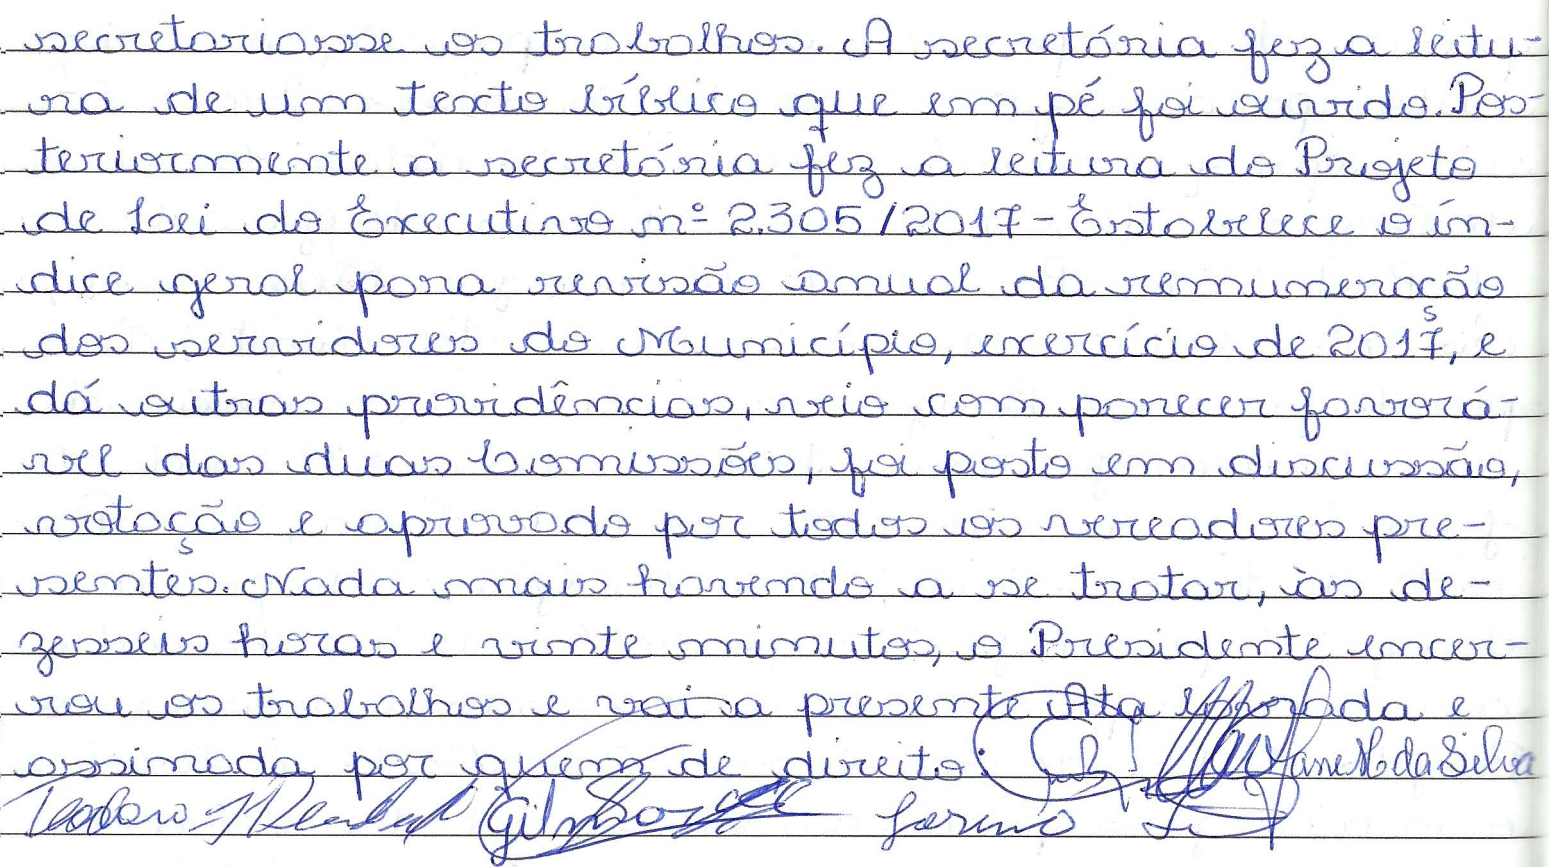 secretariasse os trabalhos. A secretária fez a leitu-
ra de um texto bíblico que em pé foi ouvido. Pos-
teriormente a secretária fez a leitura do Projeto
de Lei do Executivo nº 2.305/2017 - Estabelece o ín-
dice geral para revisão anual da remuneração
dos servidores do Município, exercício de 2017, e
dá outras providências, veio com parecer favorá-
vel das duas Comissões, foi posto em discussão,
votação e aprovado por todos os vereadores pre-
sentes. Nada mais havendo a se tratar, às de-
zesseis horas e vinte minutos, o Presidente encer-
rou os trabalhos e vai a presente Ata e
assinada por quem de direito. Jane M. da Silva